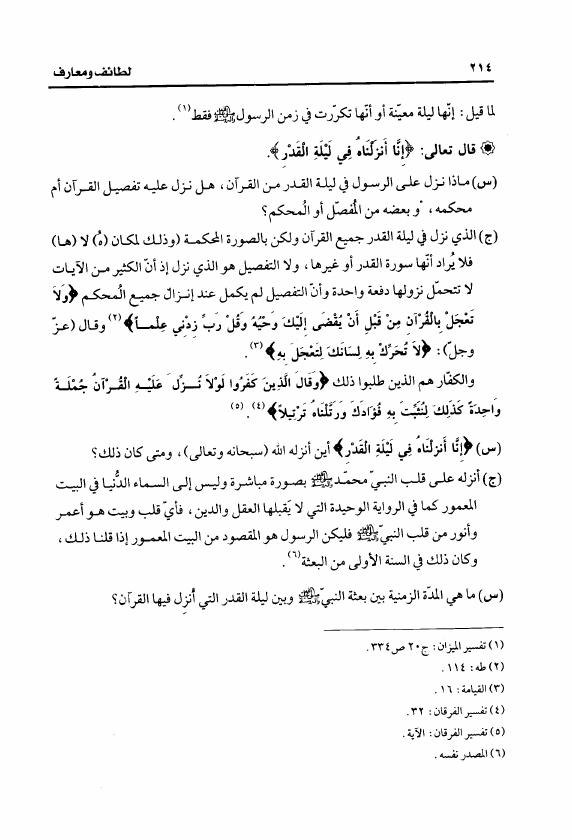 ٢١٤ لطائف ومعارف
لما قيل: إنّها ليلة معيّنة أو أنّها تكرّرت في زمن الرسول ﷺ فقط (١).
۞ قال تعالى: ﴿إِنَّا أَنزَلْنَاهُ فِي لَيْلَةِ الْقَدْرِ﴾.
(س) ماذا نزل على الرسول في ليلة القدر من القرآن، هل نزل عليه تفصيل القرآن أم
محكمه، و بعضه من المُفصّل أو المحكم؟
(ج) الذي نزل في ليلة القدر جميع القرآن ولكن بالصورة المحكمة (وذلك لمكان (هُ) لا (ها)
فلا يُراد أنّها سورة القدر أو غيرها، ولا التفصيل هو الذي نزل إذ أنّ الكثير من الآيات
لا تتحمّل نزولها دفعة واحدة وأنّ التفصيل لم يكمل عند إنزال جميع المحكم ﴿وَلَا
تَعْجَلْ بِالْقُرْآنِ مِنْ قَبْلِ أَنْ يُقْضَى إِلَيْكَ وَحْيُهُ وَقُلْ رَبِّ زِدْنِي عِلْماً﴾ (٢) وقال (عزّ
وجلّ): ﴿لَا تُحَرِّكْ بِهِ لِسَانَكَ لِتَعْجَلَ بِهِ﴾ (٣).
والكفّار هم الذين طلبوا ذلك ﴿وَقَالَ الَّذِينَ كَفَرُوا لَوْلَا نُزِّلَ عَلَيْهِ الْقُرْآنُ جُمْلَةً
وَاحِدَةً كَذَلِكَ لِنُثَبِّتَ بِهِ فُؤَادَكَ وَرَتَّلْنَاهُ تَرْتِيلاً﴾ (٤). (٥)
(س) ﴿إِنَّا أَنزَلْنَاهُ فِي لَيْلَةِ الْقَدْرِ﴾ أين أنزله الله (سبحانه وتعالى)، ومتى كان ذلك؟
(ج) أنزله على قلب النبيّ محمّد ﷺ بصورة مباشرة وليس إلى السماء الدُّنيا في البيت
المعمور كما في الرواية الوحيدة التي لا يَقبلها العقل والدين، فأيّ قلب وبيت هو أعمر
وأنور من قلب النبيّ ﷺ فليكن الرسول هو المقصود من البيت المعمور إذا قلنا ذلك،
وكان ذلك في السنة الأولى من البعثة (٦).
(س) ما هي المدّة الزمنية بين بعثة النبيّ ﷺ وبين ليلة القدر التي أُنزل فيها القرآن؟
(١) تفسير الميزان: ج٢٠ ص٣٣٤.
(٢) طه: ١١٤.
(٣) القيامة: ١٦.
(٤) تفسير الفرقان: ٣٢.
(٥) تفسير الفرقان: الآية.
(٦) المصدر نفسه.